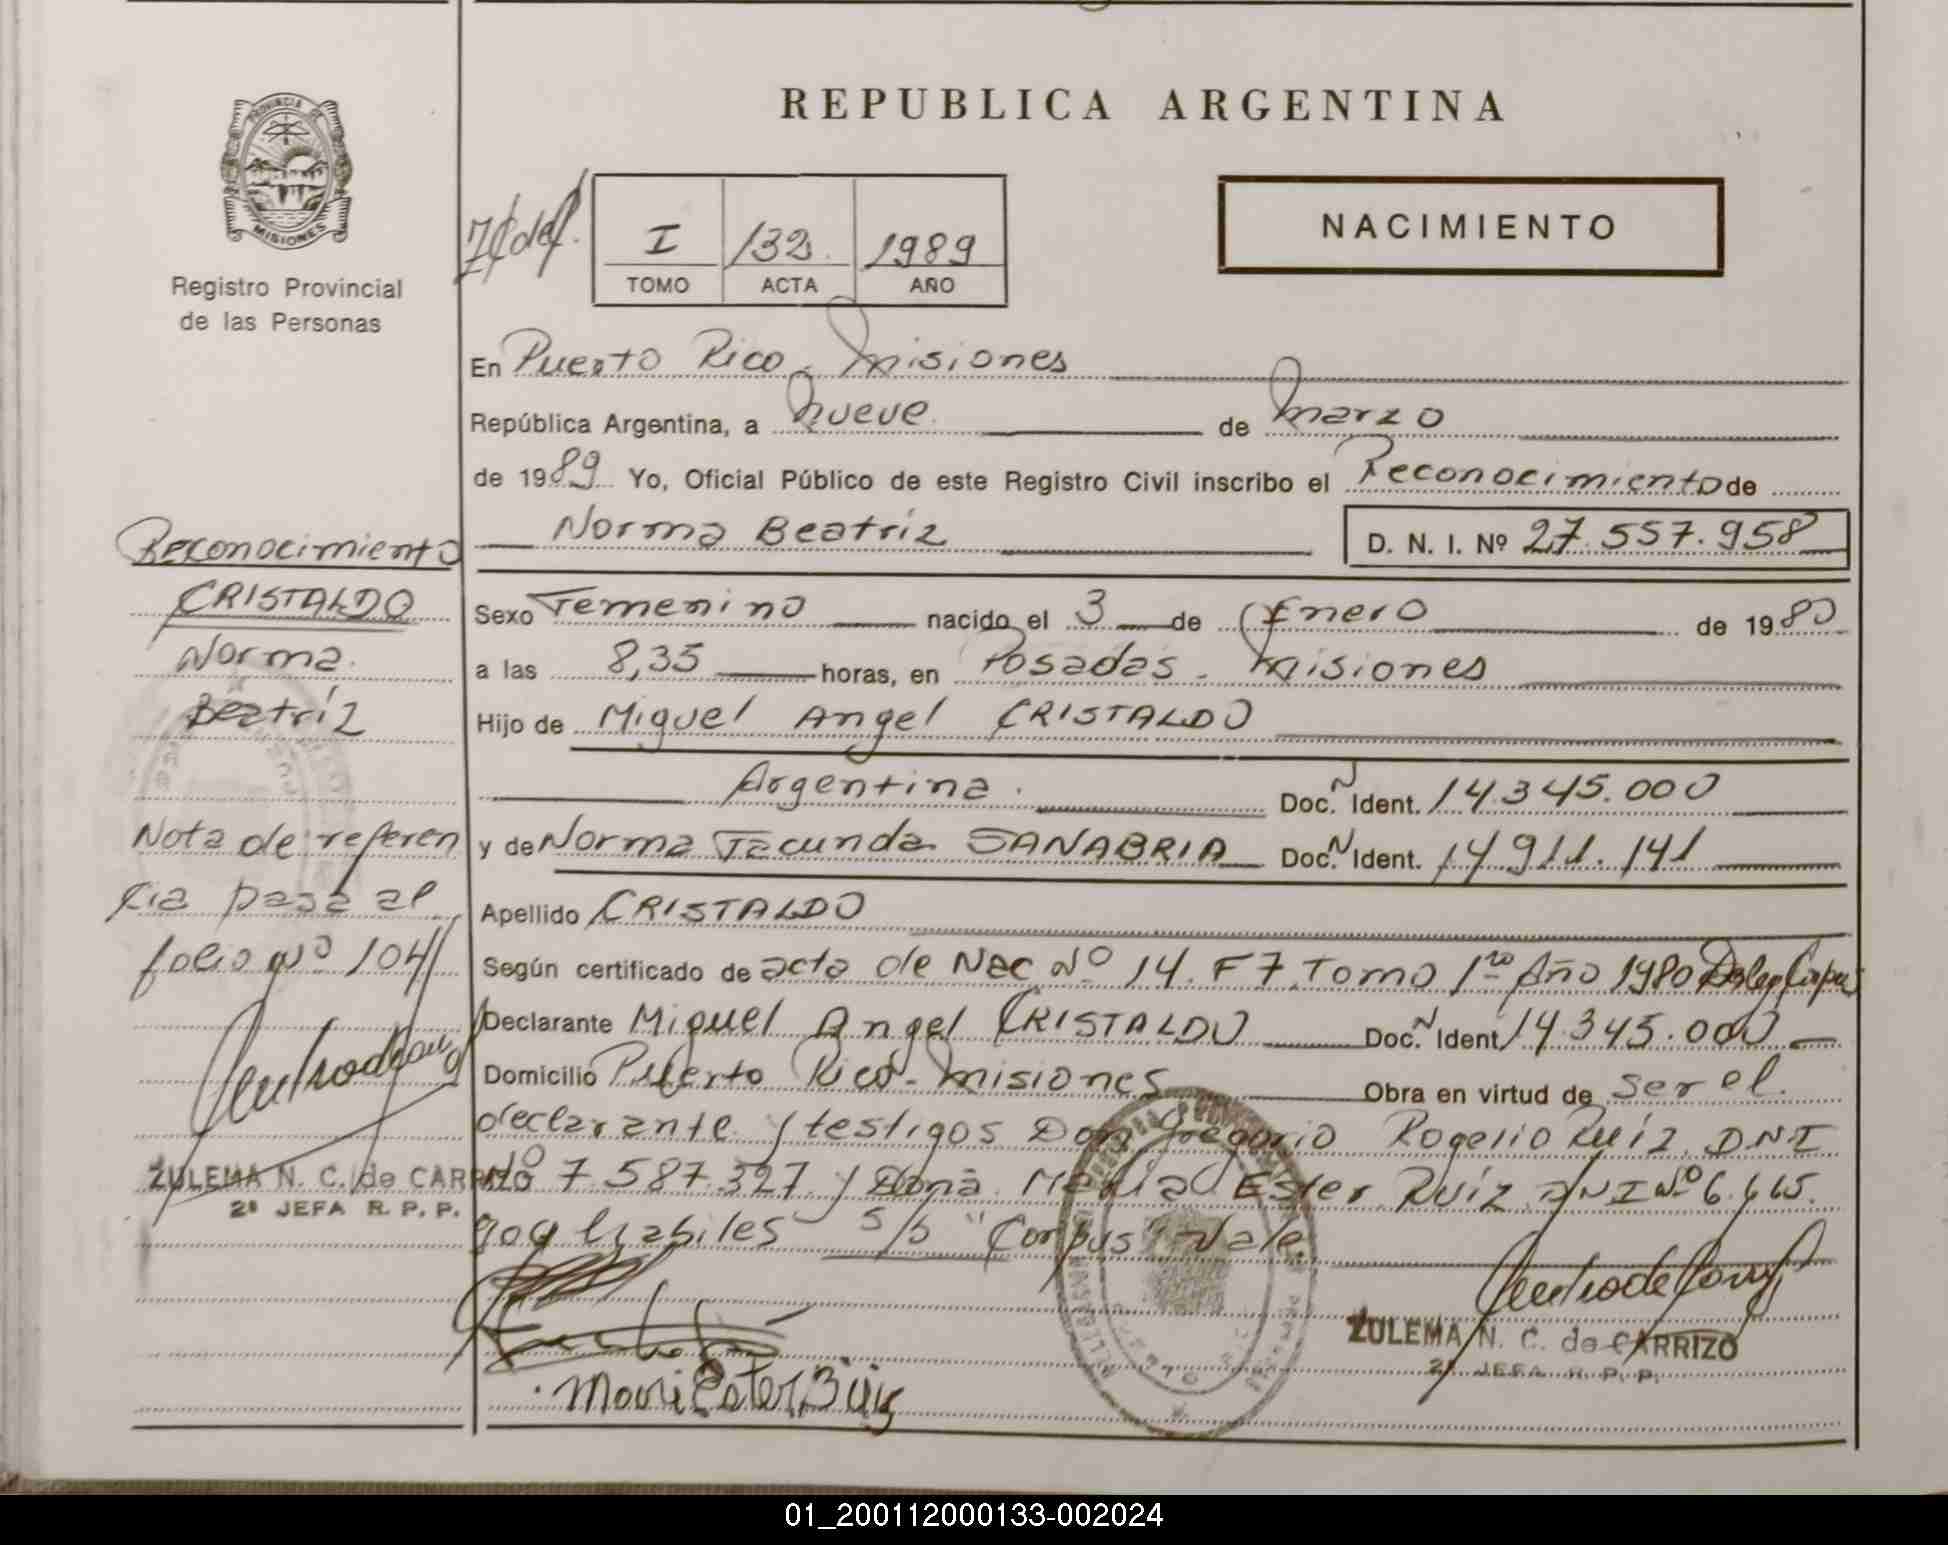 REPUBLICA ARGENTINA
PROVINCIA DE
MISIONES
Registro Provincial
de las Personas
I 132. 1989
TOMO ACTA AÑO
NACIMIENTO
En Puerto Rico - Misiones
República Argentina, a nueve de Marzo
de 1989 Yo, Oficial Público de este Registro Civil inscribo el Reconocimiento de
Norma Beatríz D. N. I. Nº 27.557.958
Sexo Femenino nacido el 3 de Enero de 1980
a las 8,35 horas, en Posadas - Misiones
Hijo de Miguel Angel CRISTALDO
Argentina. Doc. N Ident. 14.345.000
y de Norma Facunda SANABRIA Doc. N Ident. 14.911.141
Apellido CRISTALDO
Según certificado de acta de Nac Nº 14. F 7. Tomo 1ro Año 1980 Deleg Corpus
Declarante Miguel Angel CRISTALDO Doc. N Ident 14.345.000
Domicilio Puerto Rico - Misiones Obra en virtud de ser el
declarante y testigos Don Gregorio Rogelio Ruíz. D.N.I
Nº 7.587.327 y Doña María Ester Ruíz DNI Nº 6.665.
909 habiles s/b "Corpus" Vale.
ZULEMA N. C. de CARRIZO
2ª JEFA R. P. P.
Reconocimiento
CRISTALDO
Norma
Beatríz
Nota de referen
cia pasa al
folio Nº 104
ZULEMA N. C. de CARRIZO
2ª JEFA R. P. P.
01_200112000133-002024